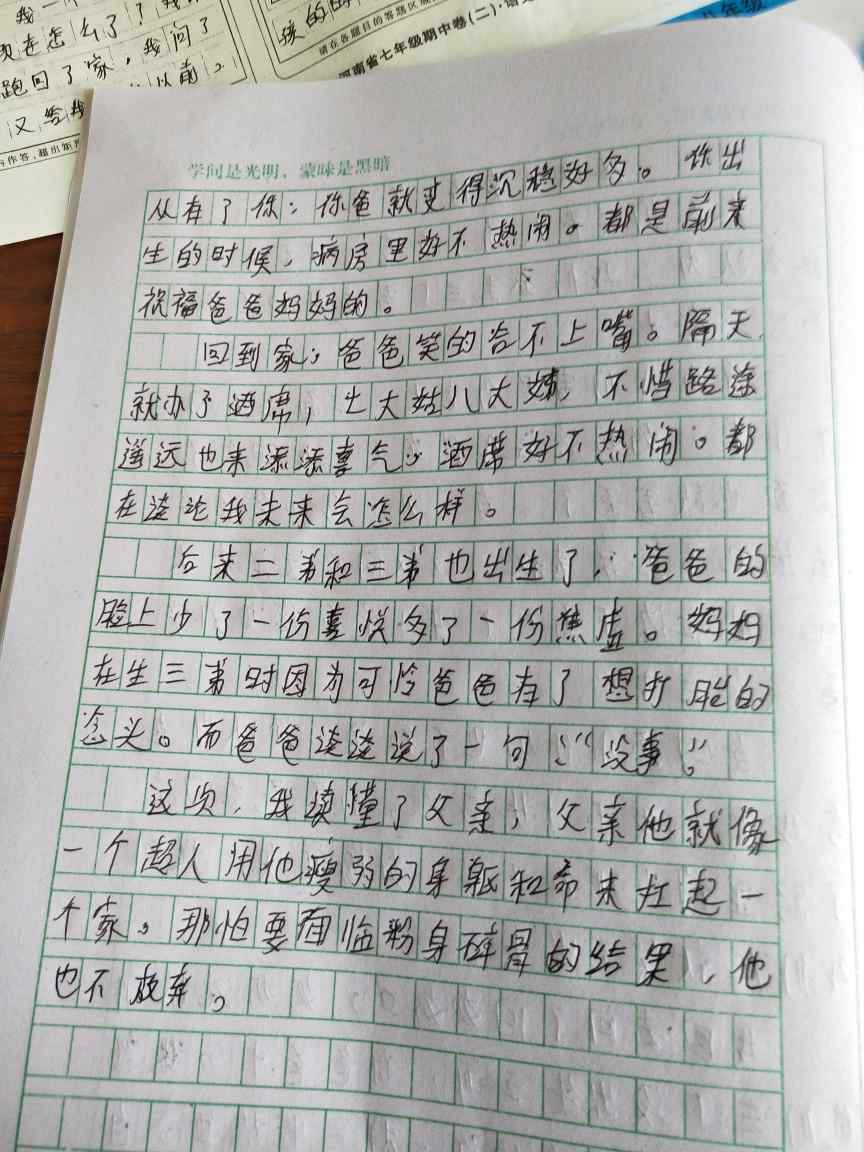 我一个
跑回了家，我问了
又答我
以前。
请在各题目的答题区域
河南省七年级期中卷(二)·语文
八年级
学问是光明，蒙昧是黑暗
从有了你；你爸就变得沉稳好多。你出
生的时候，病房里好不热闹。都是前来
祝福爸爸妈妈的。
回到家；爸爸笑的合不上嘴。隔天
就办了酒席，七大姑八大姨，不惜路途
遥远也来添添喜气，酒席好不热闹。都
在谈论我未来会怎么样。
后来二弟和三弟也出生了，爸爸的
脸上少了一份喜悦多了一份焦虑。妈妈
在生三弟时因为可怜爸爸有了想打胎的
念头。而爸爸淡淡说了一句：“没事”。
这次，我读懂了父亲；父亲他就像
一个超人用他瘦弱的身躯和命来扛起一
个家。那怕要面临粉身碎骨的结果，他
也不放弃。